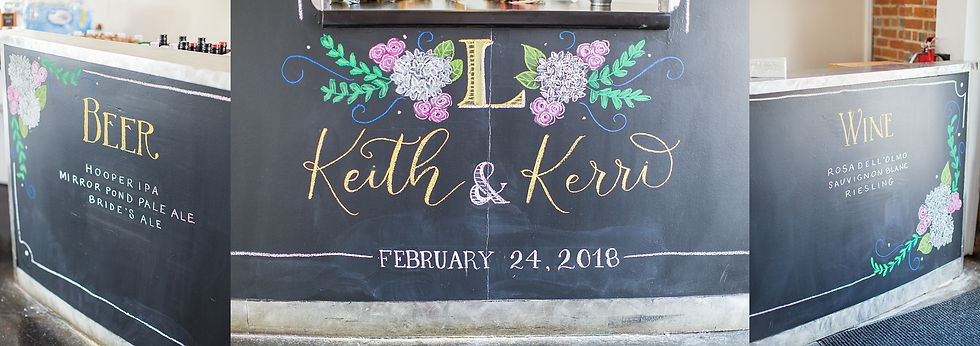 BEER
HOOPER IPA
MIRROR POND PALE ALE
BRIDE'S ALE
L
Keith & Kerri
FEBRUARY 24, 2018
WINE
ROSA DELL'OLMO
SAUVIGNON BLANC
RIESLING